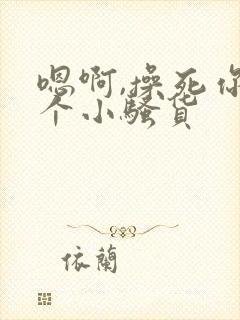 嗯啊,操死你
个小骚货
依蘭